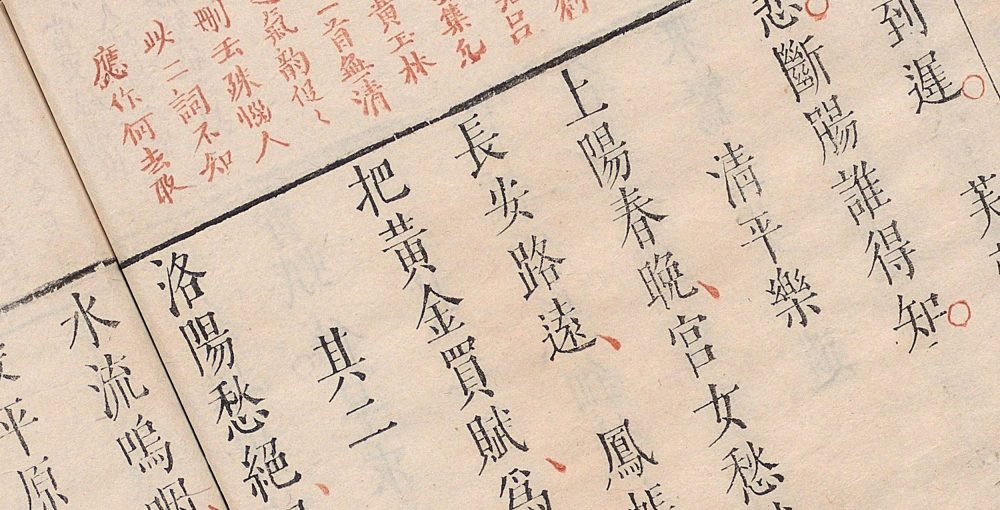 到遲芙
悲斷腸誰得知
清平樂
上陽春晚宮女愁
長安路遠 鳳帳
把黃金買賦爲
其二
洛陽愁絕
水流嗚咽
平原
呂
集
黃玉林
一首無清
氣韵促々
殊惱人
此二詞不知
應作何去取